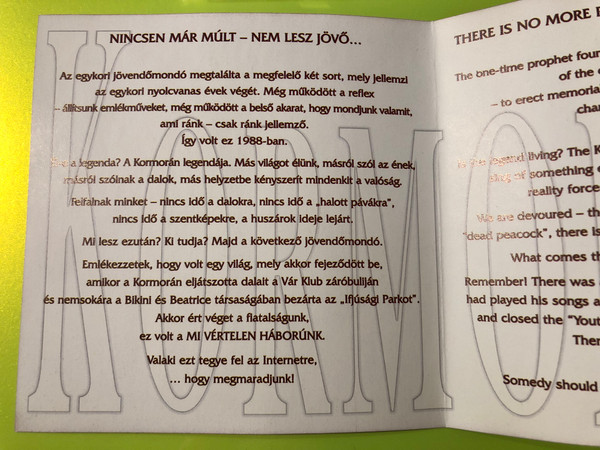 NINCSEN MÁR MÚLT – NEM LESZ JÖVŐ...
Az egykori jövendőmondó megtalálta a megfelelő két sort, mely jellemzi
az egykori nyolcvanas évek végét. Még működött a reflex
– állítsunk emlékműveket, még működött a belső akarat, hogy mondjunk valamit,
ami ránk – csak ránk jellemző.
Így volt ez 1988-ban.
a legenda? A Kormorán legendája. Más világot élünk, másról szól az ének,
másról szólnak a dalok, más helyzetbe kényszerít mindenkit a valóság.
Felfalnak minket – nincs idő a dalokra, nincs idő a „halott pávákra”,
nincs idő a szentképekre, a huszárok ideje lejárt.
Mi lesz ezután? Ki tudja? Majd a következő jövendőmondó.
Emlékezzetek, hogy volt egy világ, mely akkor fejeződött be,
amikor a Kormorán eljátszotta dalait a Vár Klub záróbuliján
és nemsokára a Bikini és Beatrice társaságában bezárta az „Ifjúsági Parkot”.
Akkor ért véget a fiatalságunk,
ez volt a MI VÉRTELEN HÁBORÚNK.
Valaki ezt tegye fel az Internetre,
... hogy megmaradjunk!
KORMO
THERE IS NO MORE
The one-time prophet
of the
– to erect
living? The
of something
reality
We are devoured –
"dead peacock", there is
What comes
Remember! There was
had played his songs
and closed the
Somedy should